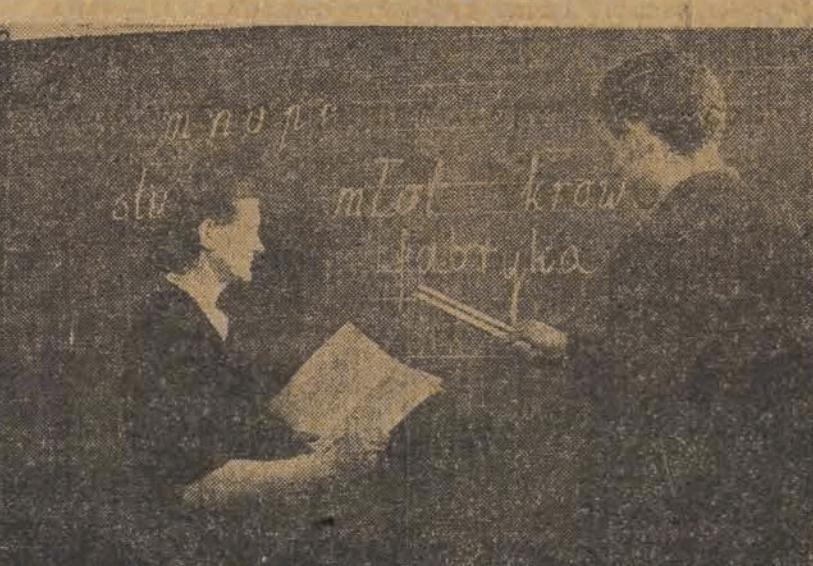 m n o p r
stu młot krow
fabryka